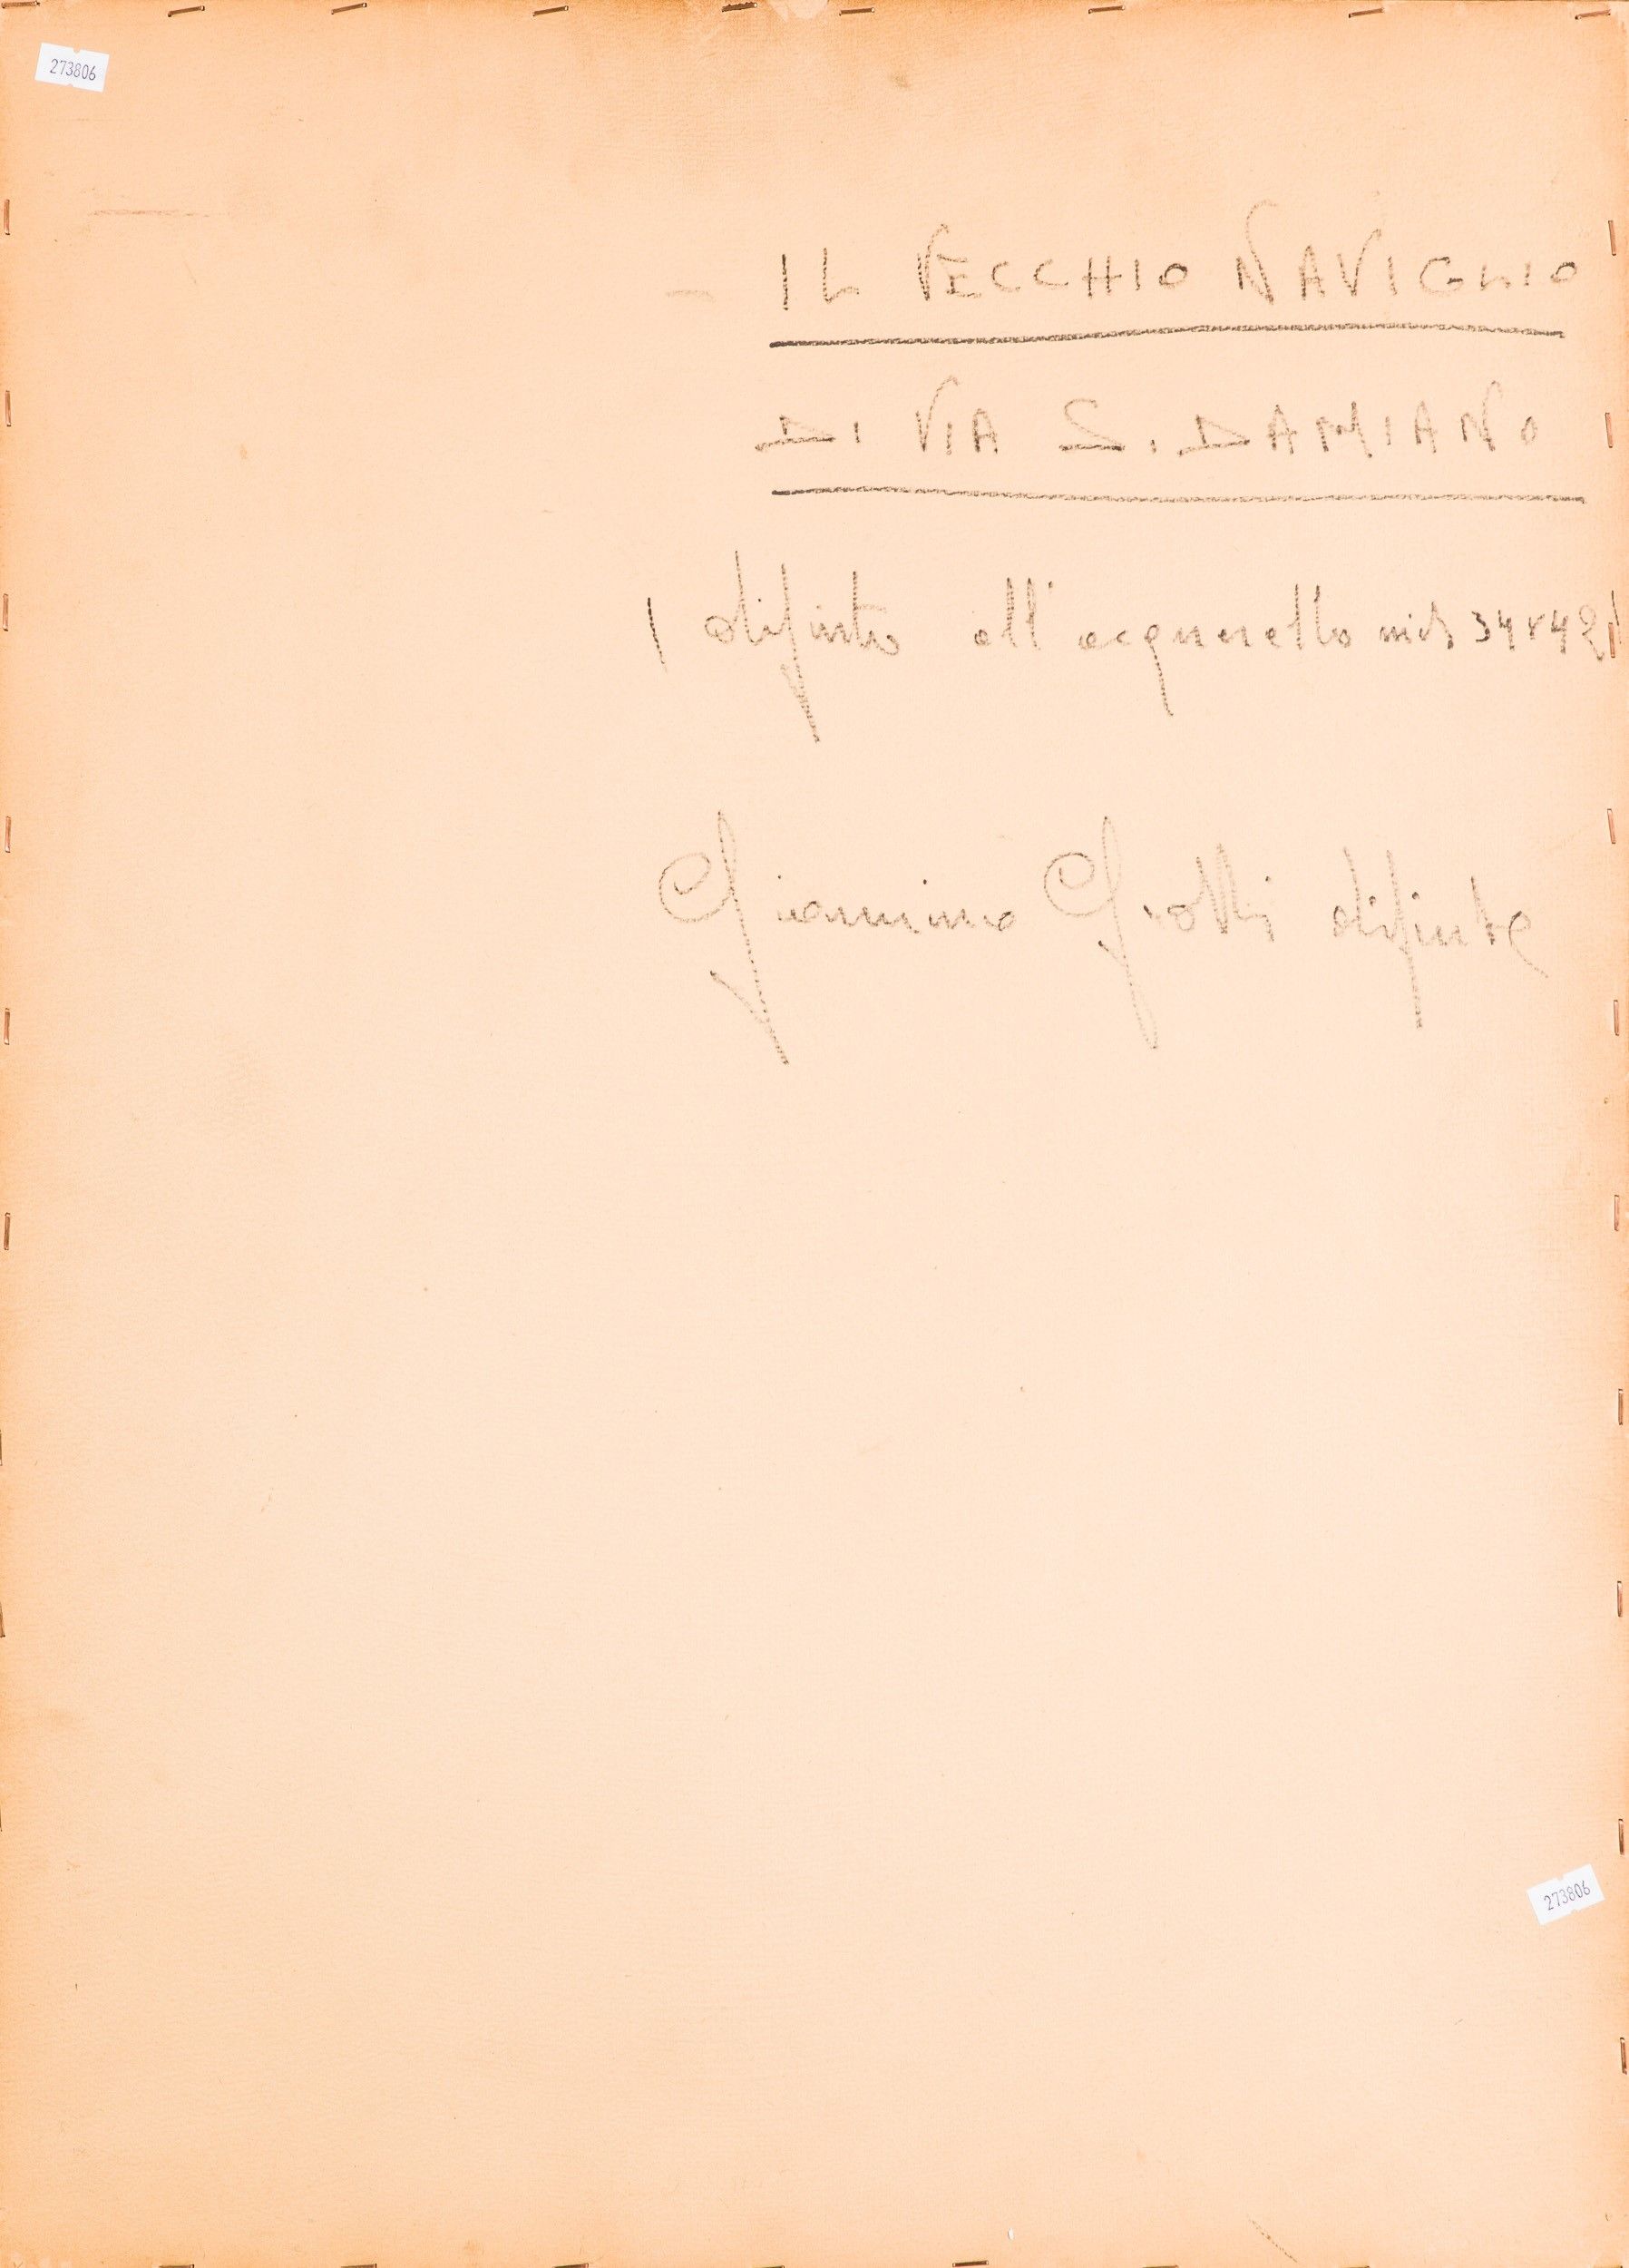 273806
IL VECCHIO NAVIGLIO
DI VIA S. DAMIANO
( dipinto all'acquarello mis 34x42)
Giannino Grossi dipinse
273806